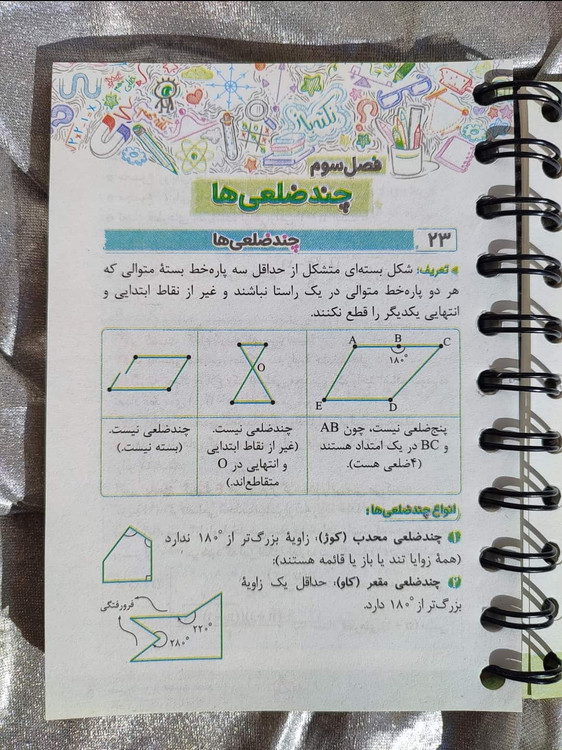 نکته باز
فصل سوم
چندضلعی‌ها
۲۳ چندضلعی‌ها
تعریف: شکل بسته‌ای متشکل از حداقل سه پاره‌خط بستهٔ متوالی که
هر دو پاره‌خط متوالی در یک راستا نباشند و غیر از نقاط ابتدایی و
انتهایی یکدیگر را قطع نکنند.
A B C
۱۸۰°
E D
O
پنج‌ضلعی نیست، چون AB
و BC در یک امتداد هستند
(۴ضلعی هست).
چندضلعی نیست.
(غیر از نقاط ابتدایی
و انتهایی در O
متقاطع‌اند.)
چندضلعی نیست.
(بسته نیست.)
انواع چندضلعی‌ها:
۱ چندضلعی محدب (کوژ): زاویهٔ بزرگ‌تر از ۱۸۰° ندارد
(همهٔ زوایا تند یا باز یا قائمه هستند):
۲ چندضلعی مقعر (کاو): حداقل یک زاویهٔ
بزرگ‌تر از ۱۸۰° دارد.
فرورفتگی
۲۲۰°
۲۸۰°